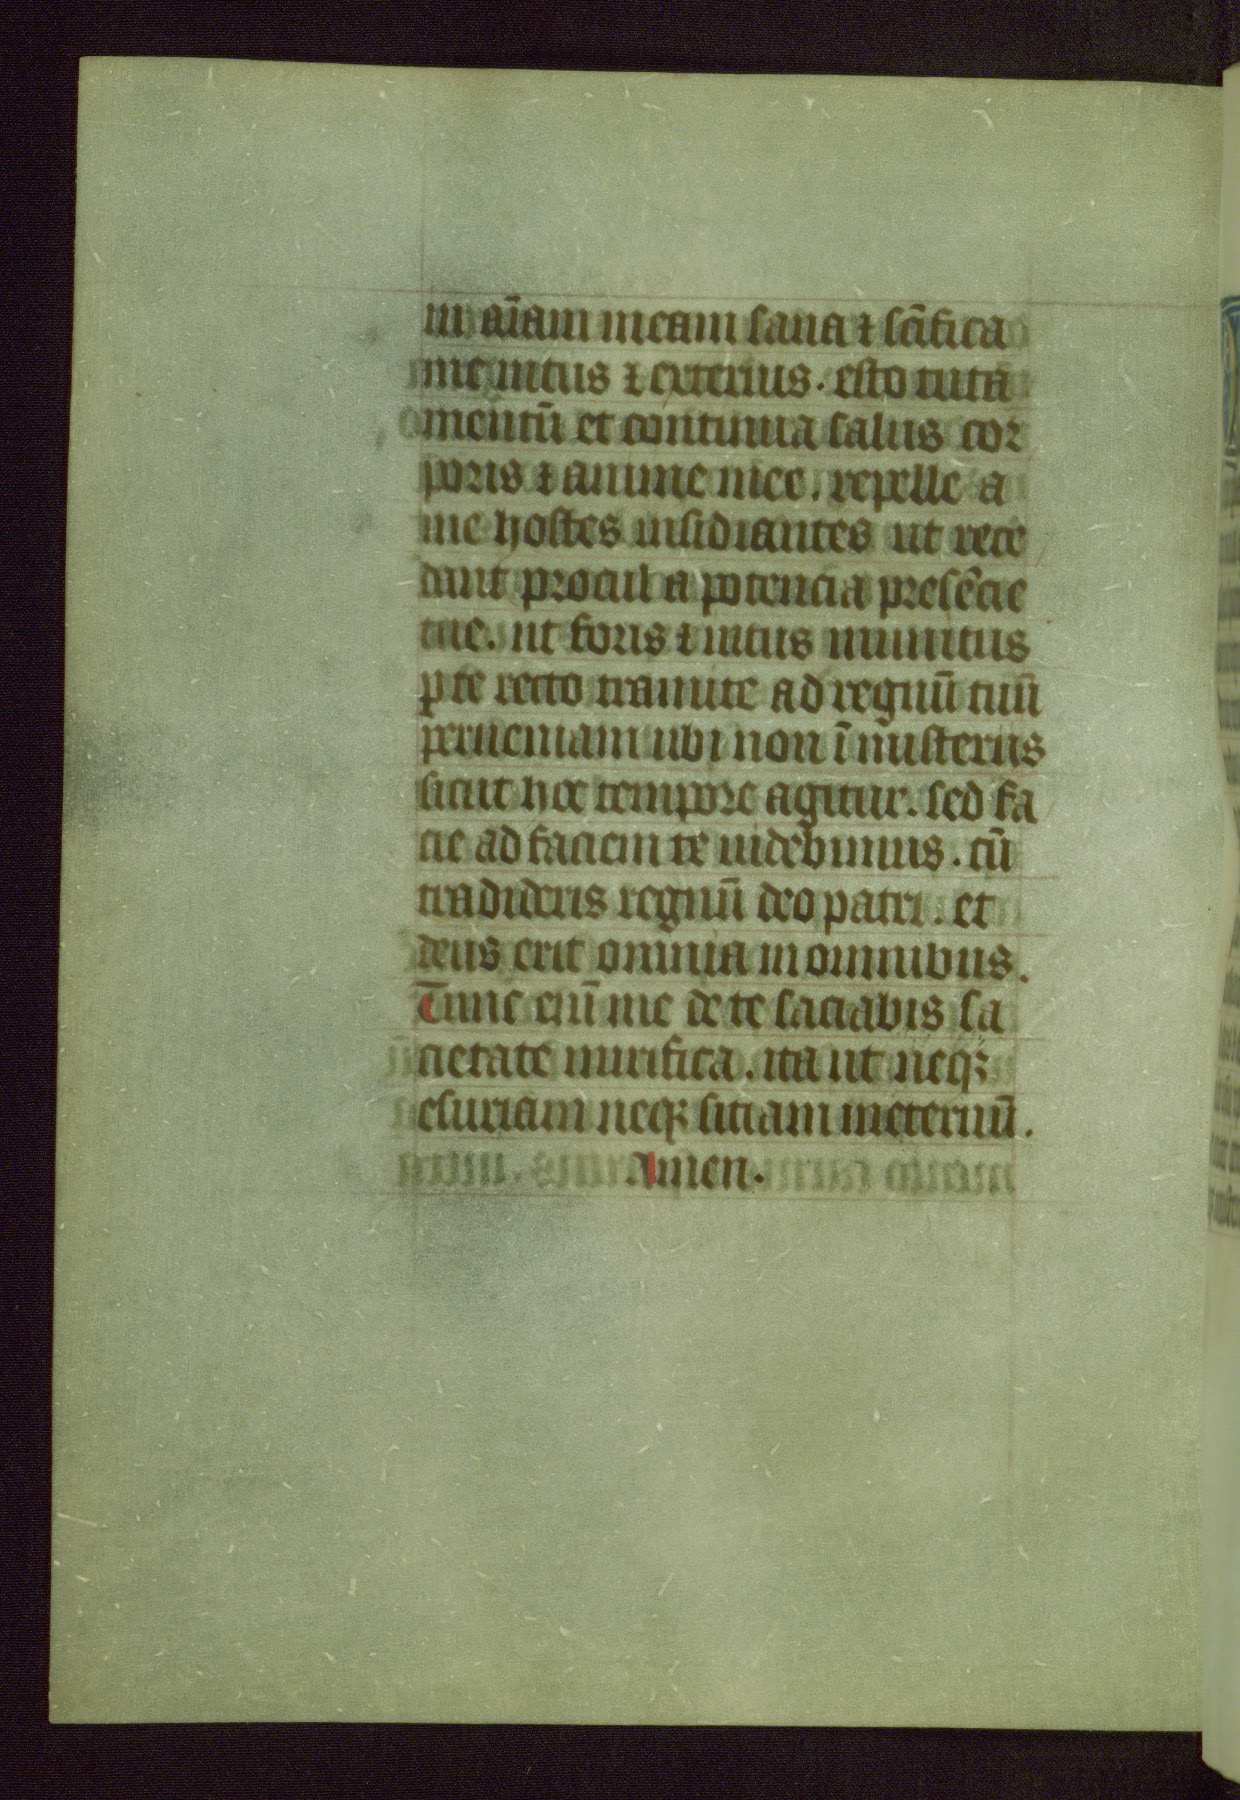 in aīam meam sana ⁊ scīfica
me intus ⁊ exterius. esto tutā
mentū et continua salus cor
poris ⁊ anime mee. repelle a
me hostes insidiantes ut rece
dant procul a potencia presēcie
tue. ut foris ⁊ intus munitus
ꝑ te recto tramite ad regnū tuū
perueniam ubi non ī misteriis
sicut hoc tempore agitur. sed fa
cie ad faciem te uidebimus. cū
tradideris regnū deo patri. et
deus erit omnia in omnibus.
Tunc enī me de te saciabis sa
cietate mirifica. ita ut neqꝫ
esuriam neqꝫ sitiam ineternū.
Amen.